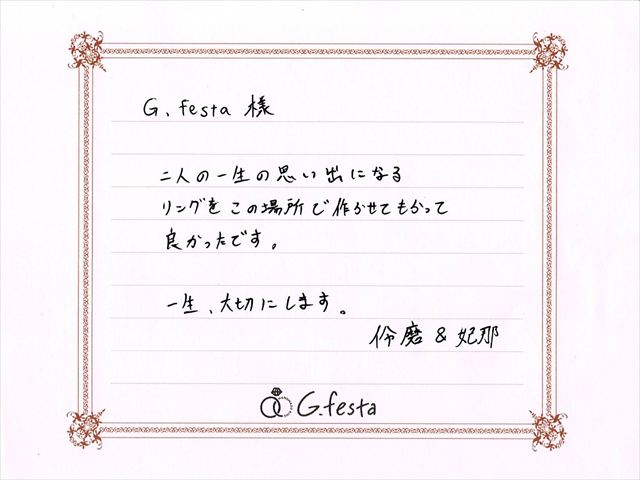 G.festa 様
二人の一生の思い出になる
リングをこの場所で作らせてもらって
良かったです。
一生、大切にします。
伶磨 & 妃那
G.festa